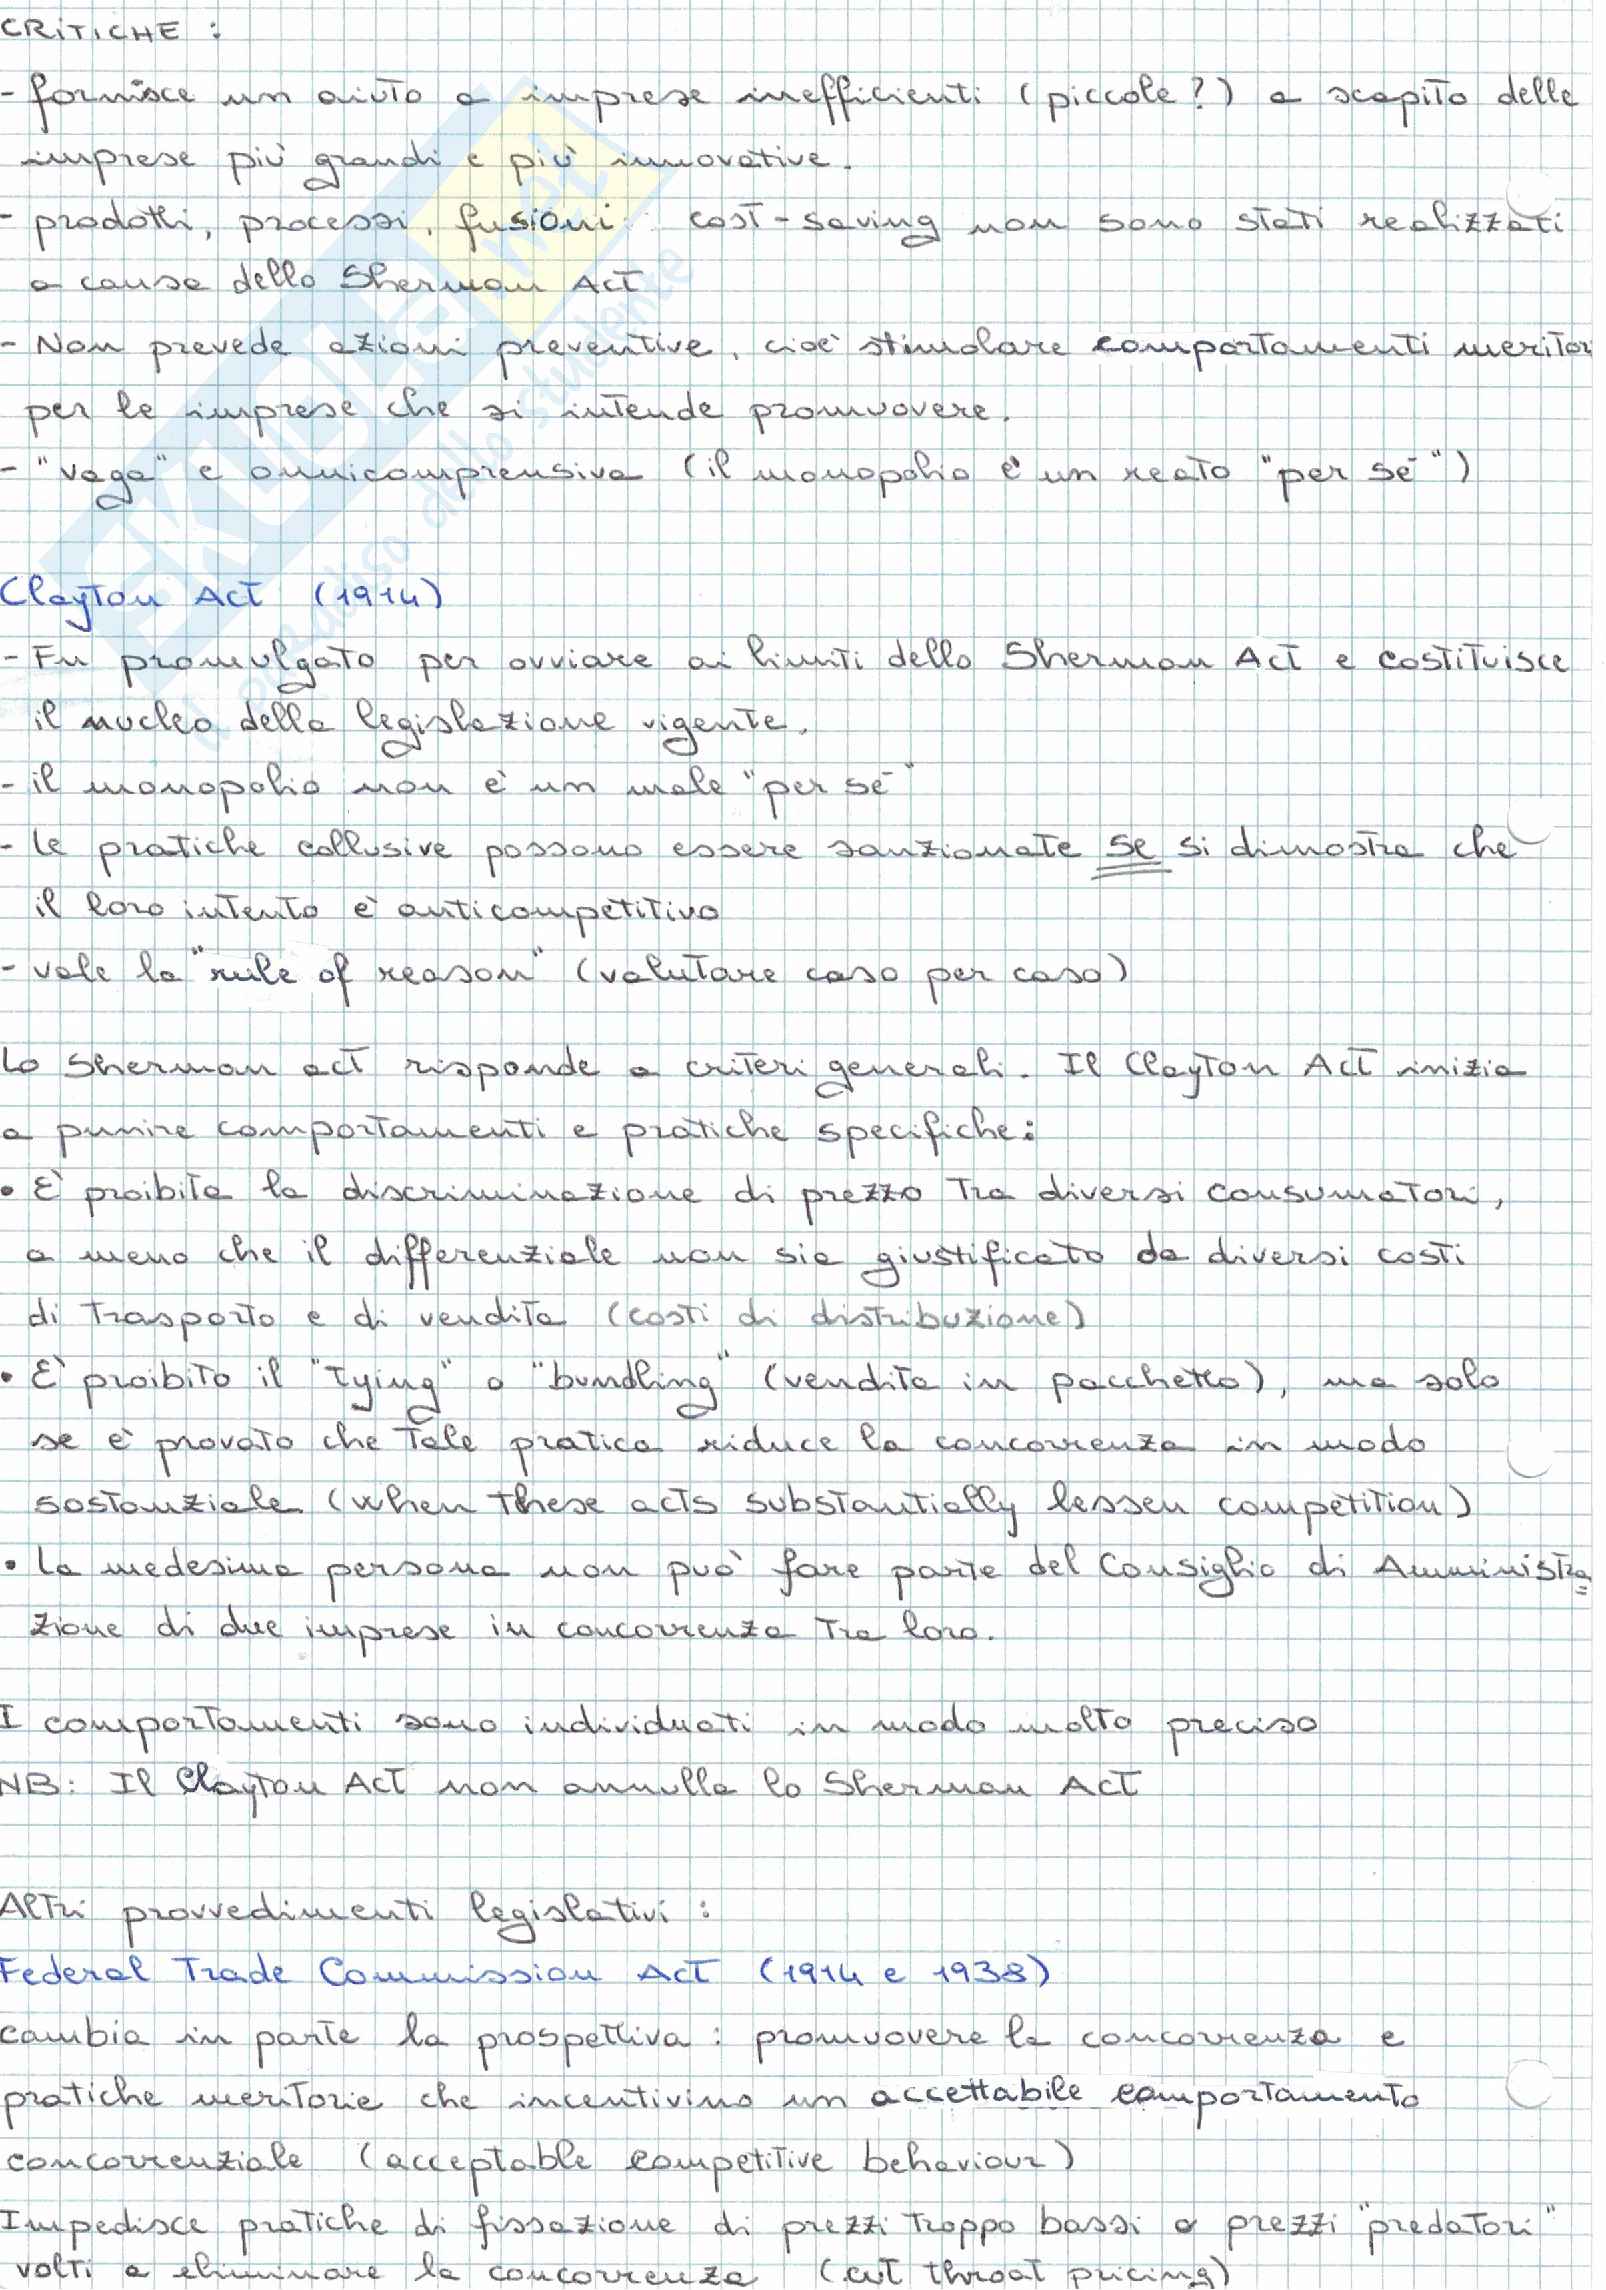 CRITICHE :
- fornisce un aiuto a imprese inefficienti (piccole?) a scapito delle
imprese più grandi e più innovative.
- prodotti, processi, fusioni cost-saving non sono stati realizzati
a causa dello Sherman Act
- Non prevede azioni preventive, cioè stimolare comportamenti meritor
per le imprese che si intende promuovere.
- "vaga" e omnicomprensiva (il monopolio è un reato "per sé")
Clayton Act (1914)
- Fu promulgato per ovviare ai limiti dello Sherman Act e costituisce
il nucleo della legislazione vigente.
- il monopolio non è un male "per sé"
- Le pratiche collusive possono essere sanzionate se si dimostra che
il loro intento è anticompetitivo
- vale la "rule of reason" (valutare caso per caso)
Lo Sherman act risponde a criteri generali. Il Clayton Act inizia
a punire comportamenti e pratiche specifiche:
• È proibita la discriminazione di prezzo tra diversi consumatori,
a meno che il differenziale non sia giustificato da diversi costi
di trasporto e di vendita (costi di distribuzione)
• È proibito il "tying" o "bundling" (vendita in pacchetto), ma solo
se è provato che tale pratica riduce la concorrenza in modo
sostanziale (when these acts substantially lessen competition)
• La medesima persona non può fare parte del Consiglio di Amministra=
zione di due imprese in concorrenza tra loro.
I comportamenti sono individuati in modo molto preciso
NB: Il Clayton Act non annulla lo Sherman Act
Altri provvedimenti legislativi :
Federal Trade Commission Act (1914 e 1938)
cambia in parte la prospettiva : promuovere la concorrenza e
pratiche meritorie che incentivino un accettabile comportamento
concorrenziale (acceptable competitive behaviour)
Impedisce pratiche di fissazione di prezzi troppo bassi o prezzi "predatori"
volti a eliminare la concorrenza (cut throat pricing)